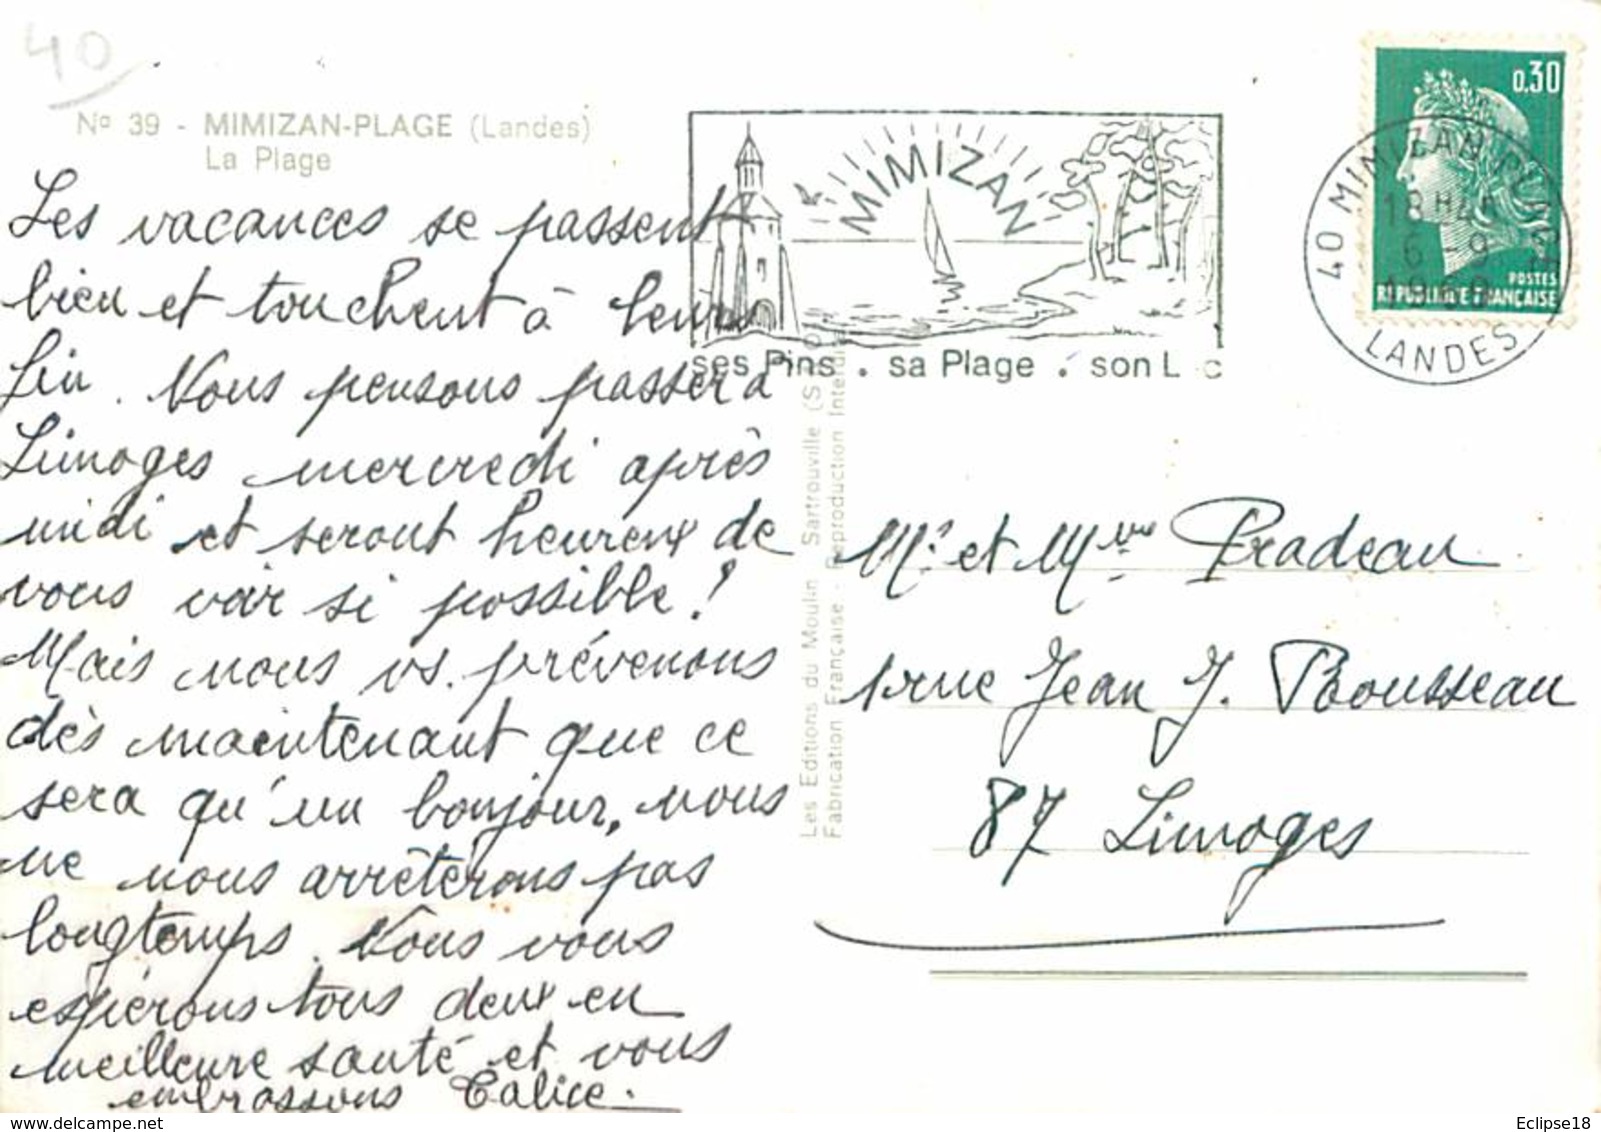 40
Nº 39 - MIMIZAN-PLAGE (Landes)
La Plage
Les vacances se passent
bien et touchent à leurs
fin. Nous pensons passer à
Limoges mercredi après
midi et seront heureux de
vous voir si possible!
Mais nous vs. prévenons
dès maintenant que ce
sera qu'un bonjour, nous
ne nous arrêterons pas
longtemps. Nous vous
espérons tous deux en
meilleure santé et vous
embrassons
MIMIZAN
ses Pins . sa Plage . son L c
Les Editions du Moulin Sartrouville (S
Fabrication Française - Reproduction Interdite
0,30
POSTES
REPUBLIQUE FRANÇAISE
40 MIMIZAN PLAGE
18H45
6 -9
1969
LANDES
Mr et Mme Pradeau
1 rue Jean J. Rousseau
87 Limoges
Eclipse18